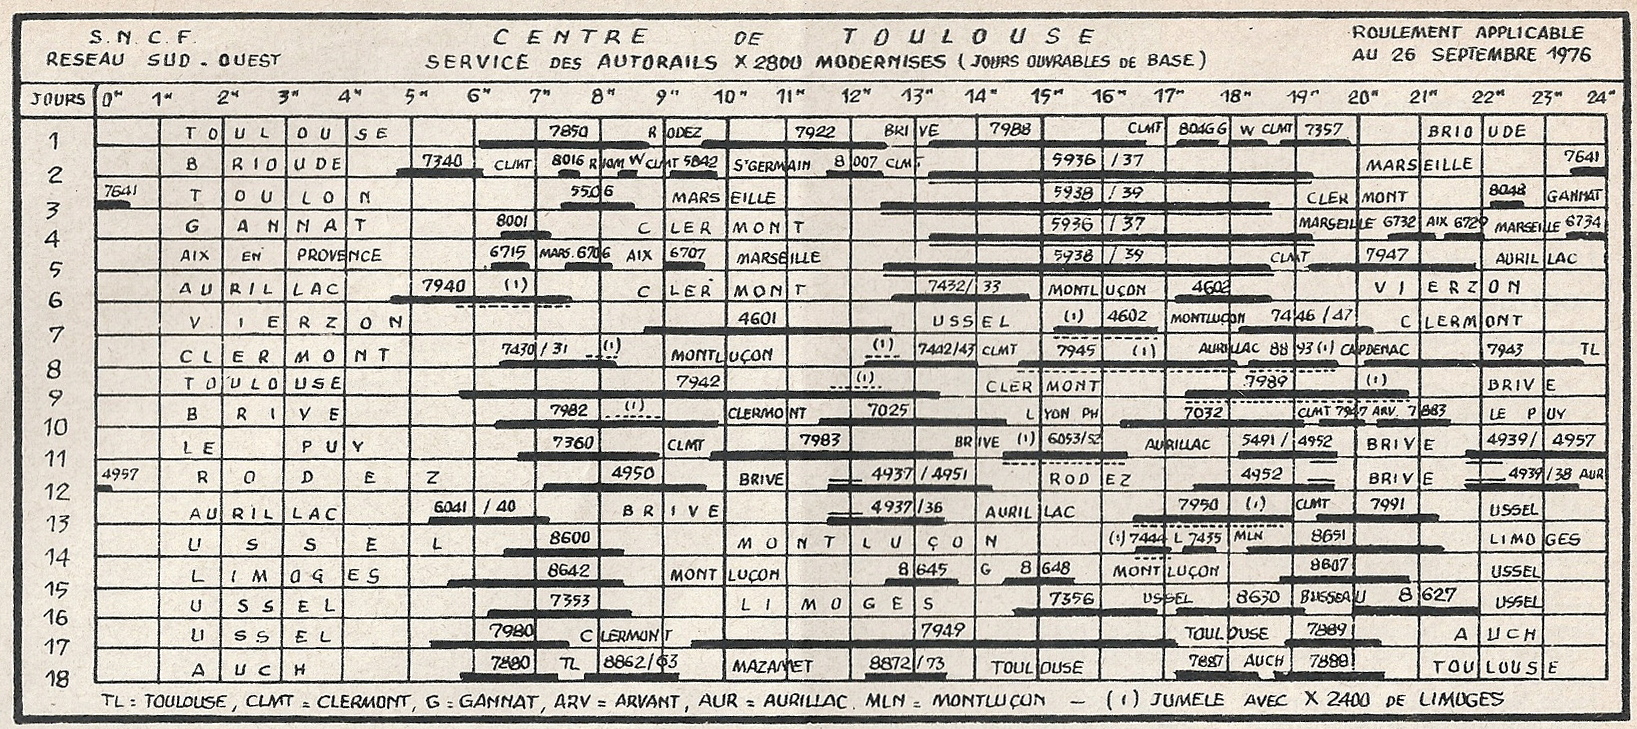 S.N.C.F. CENTRE DE TOULOUSE ROULEMENT APPLICABLE
RESEAU SUD-OUEST SERVICE DES AUTORAILS X 2800 MODERNISES (JOURS OUVRABLES DE BASE) AU 26 SEPTEMBRE 1976
JOURS 0H 1H 2H 3H 4H 5H 6H 7H 8H 9H 10H 11H 12H 13H 14H 15H 16H 17H 18H 19H 20H 21H 22H 23H 24H
1 TOULOUSE 7850 RODEZ 7922 BRIVE 7988 CLMT 80466 W CLMT 7357 BRIOUDE
2 BRIOUDE 7340 CLMT 8016 RIOM W CLMT 5842 ST GERMAIN 8007 CLMT 5936/37 MARSEILLE 7641
3 7641 TOULON 5506 MARSEILLE 5938/39 CLERMONT 8048 GANNAT
4 GANNAT 8001 CLERMONT 5936/37 MARSEILLE 6732 AIX 6729 MARSEILLE 6734
5 AIX EN PROVENCE 6715 MARS. 6706 AIX 6707 MARSEILLE 5938/39 CLMT 7947 AURILLAC
6 AURILLAC 7940 (1) CLERMONT 7432/33 MONTLUÇON 4602 VIERZON
7 VIERZON 4601 USSEL (1) 4602 MONTLUCON 7446/47 CLERMONT
8 CLERMONT 7430/31 (1) MONTLUÇON (1) 7442/43 CLMT 7945 (1) AURILLAC 8893 (1) CAPDENAC 7943 TL
9 TOULOUSE 7942 (1) CLERMONT 7989 (1) BRIVE
10 BRIVE 7982 (1) CLERMONT 7025 LYON PH 7032 CLMT 7947 ARV. 7883 LE PUY
11 LE PUY 7360 CLMT 7983 BRIVE (1) 6053/52 AURILLAC 5491/4952 BRIVE 4939/4957
12 4957 RODEZ 4950 BRIVE 4937/4951 RODEZ 4952 BRIVE 4939/38 AUR
13 AURILLAC 6041/40 BRIVE 4937/36 AURILLAC 7950 (1) CLMT 7991 USSEL
14 USSEL 8600 MONTLUÇON (1) 7444 L 7435 MLN 8651 LIMOGES
15 LIMOGES 8642 MONTLUÇON 8645 G 8648 MONTLUÇON 8607 USSEL
16 USSEL 7353 LIMOGES 7356 USSEL 8630 BUSSEAU 8627 USSEL
17 USSEL 7980 CLERMONT 7949 TOULOUSE 7889 AUCH
18 AUCH 7880 TL 8862/63 MAZAMET 8872/73 TOULOUSE 7887 AUCH 7888 TOULOUSE
TL = TOULOUSE, CLMT = CLERMONT, G = GANNAT, ARV = ARVANT, AUR = AURILLAC MLN = MONTLUÇON — (1) JUMELE AVEC X 2400 DE LIMOGES